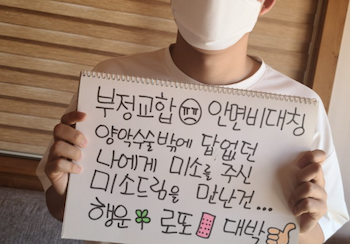 부정교합 안면비대칭
양악수술밖에 답없던
나에게 미소를 주신
미소드림을 만난건...
행운 로또 대박